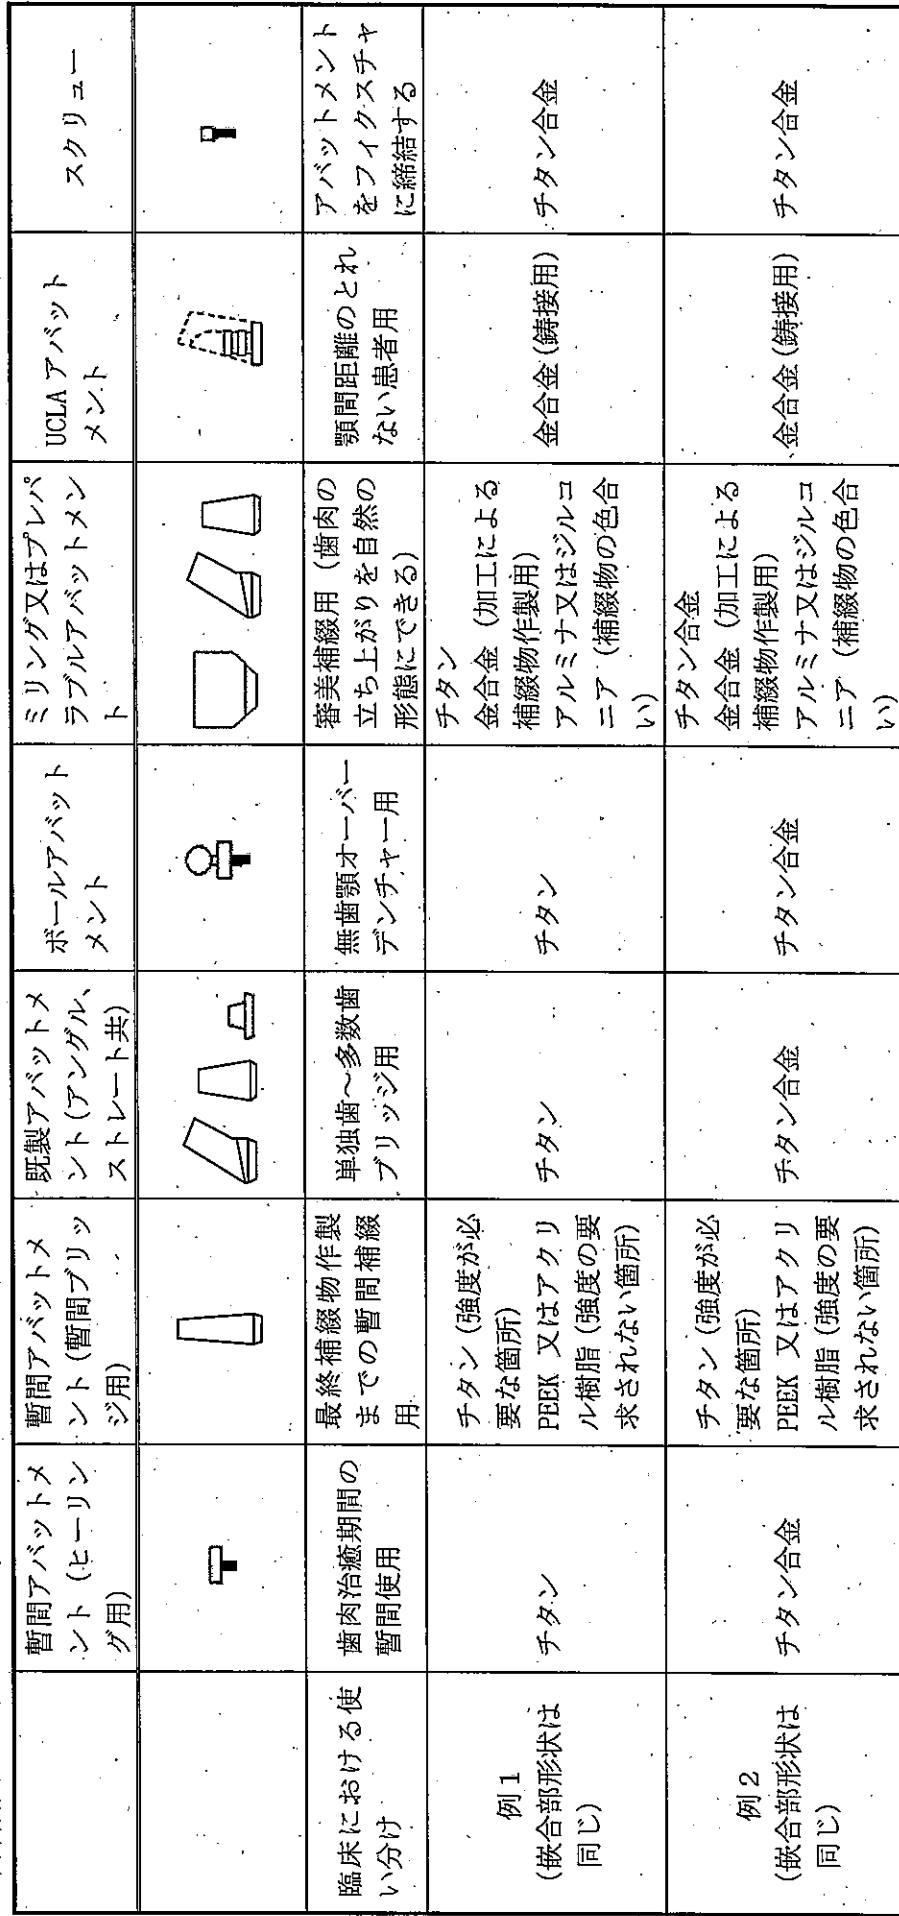 暫間アバットメ
ント(ヒーリン
グ用)
暫間アバットメ
ント(暫間ブリッ
ジ用)
既製アバットメ
ント(アングル、
ストレート共)
ボールアバット
メント
ミリング又はプレパ
ラブルアバットメン
ト
UCLAアバット
メント
スクリュー
臨床における使
い分け
歯肉治癒期間の
暫間使用
最終補綴物作製
までの暫間補綴
用
単独歯～多数歯
ブリッジ用
無歯顎オーバー
デンチャー用
審美補綴用(歯肉の
立ち上がりを自然の
形態にできる)
顎間距離のとれ
ない患者用
アバットメント
をフィクスチャ
に締結する
例1
(嵌合部形状は
同じ)
チタン
チタン(強度が必
要な箇所)
PEEK 又はアクリ
ル樹脂(強度の要
求されない箇所)
チタン
チタン
チタン
金合金(加工による
補綴物作製用)
アルミナ又はジルコ
ニア(補綴物の色合
い)
金合金(鋳接用)
チタン合金
例2
(嵌合部形状は
同じ)
チタン合金
チタン(強度が必
要な箇所)
PEEK 又はアクリ
ル樹脂(強度の要
求されない箇所)
チタン合金
チタン合金
チタン合金
金合金(加工による
補綴物作製用)
アルミナ又はジルコ
ニア(補綴物の色合
い)
金合金(鋳接用)
チタン合金